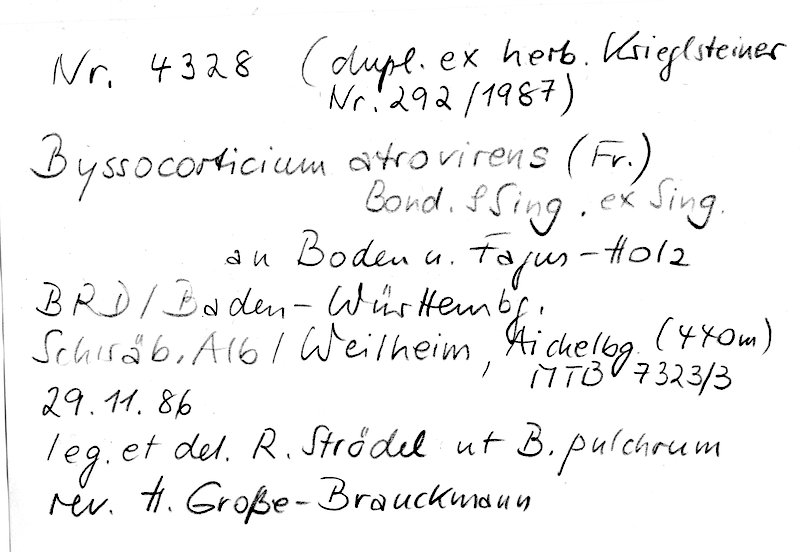 Nr. 4328 (dupl. ex herb. Krieglsteiner
Nr. 292/1987)
Byssocorticium atrovirens (Fr.)
Bond. & Sing. ex Sing.
an Boden u. Fagus-Holz
BRD/Baden-Württembg.
Schwäb. Alb/Weilheim, Aichelbg. (440m)
MTB 7323/3
29.11.86
leg. et det. R. Strödel ut B. pulchrum
rev. H. Große-Brauckmann